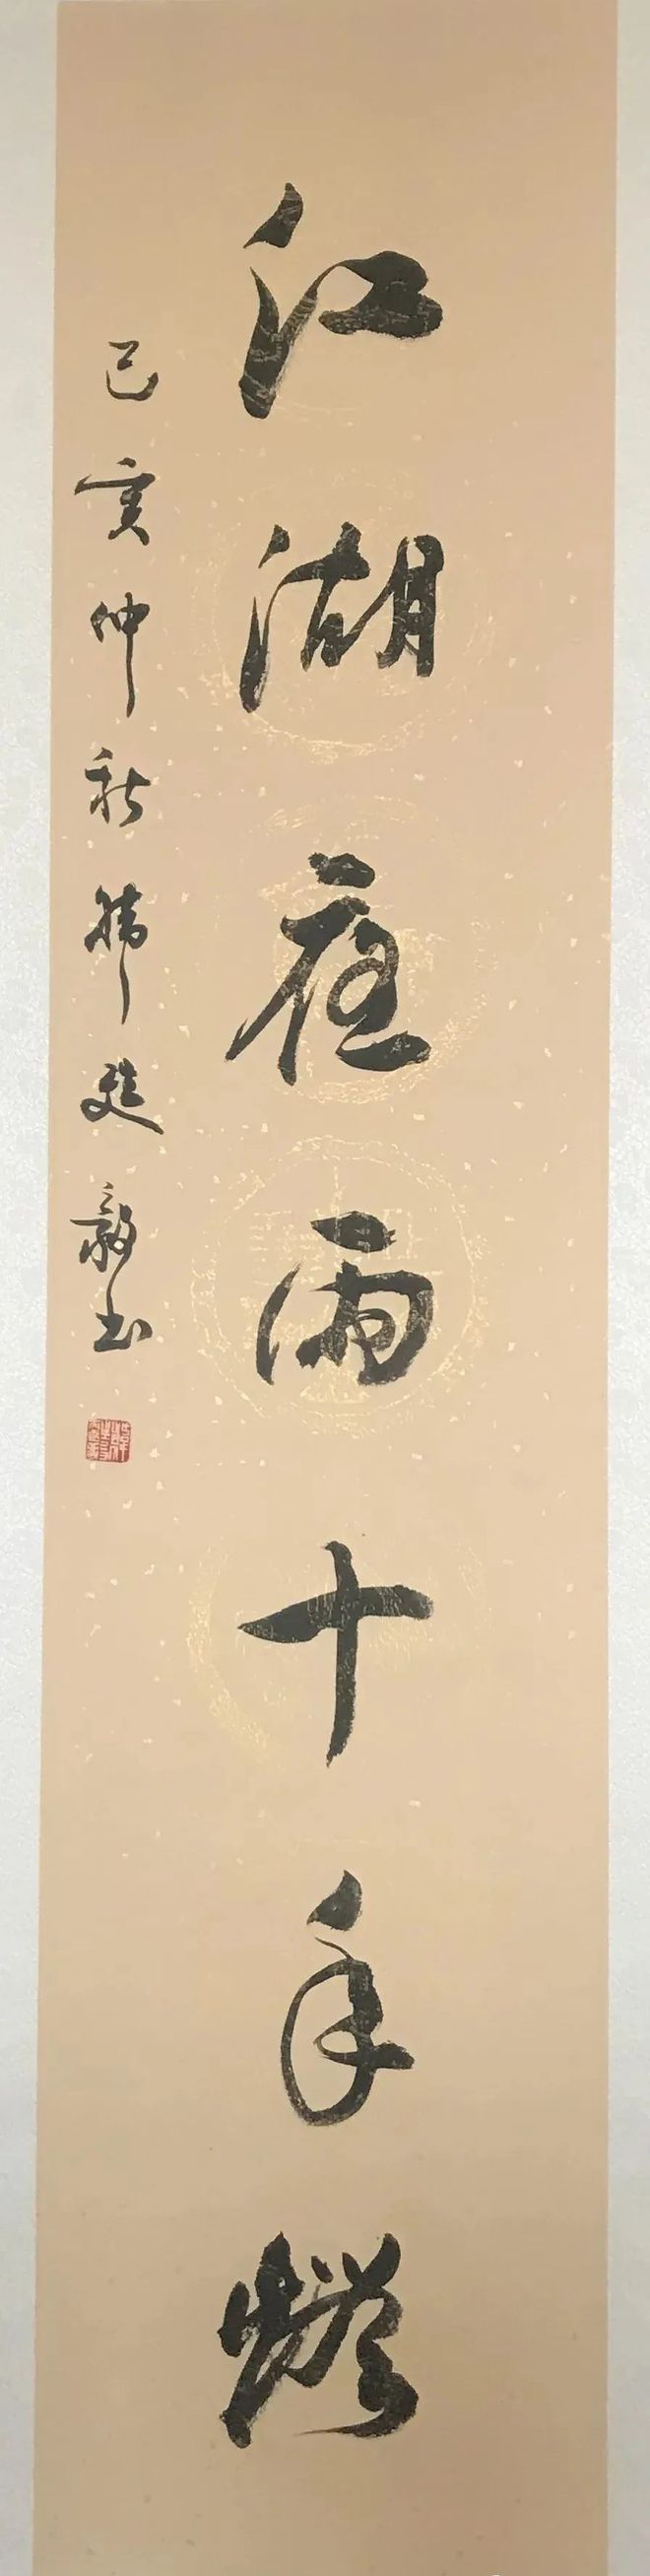 江湖夜雨十年燈
己亥仲秋韩毅书